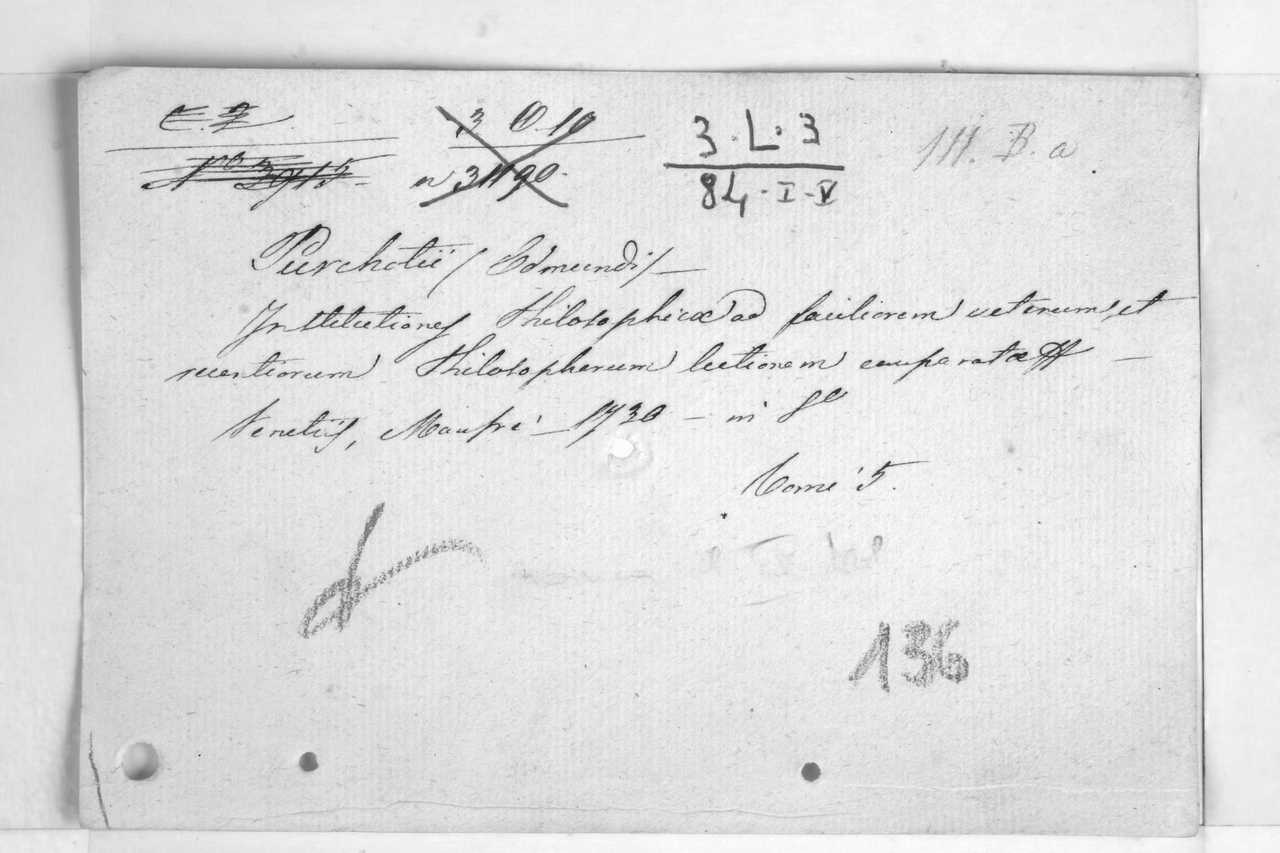 E. Z. 3 O 10 3.L.3 III. B. a
N° 3915 n 3190 84-I-V
Purchotii / Edmundi /
Institutiones Philosophicæ ad faciliorem veterum, et
recentiorum Philosophorum lectionem comparatæ
Venetiis, Manfrè 1730 – in 8°
Tome 5.
136